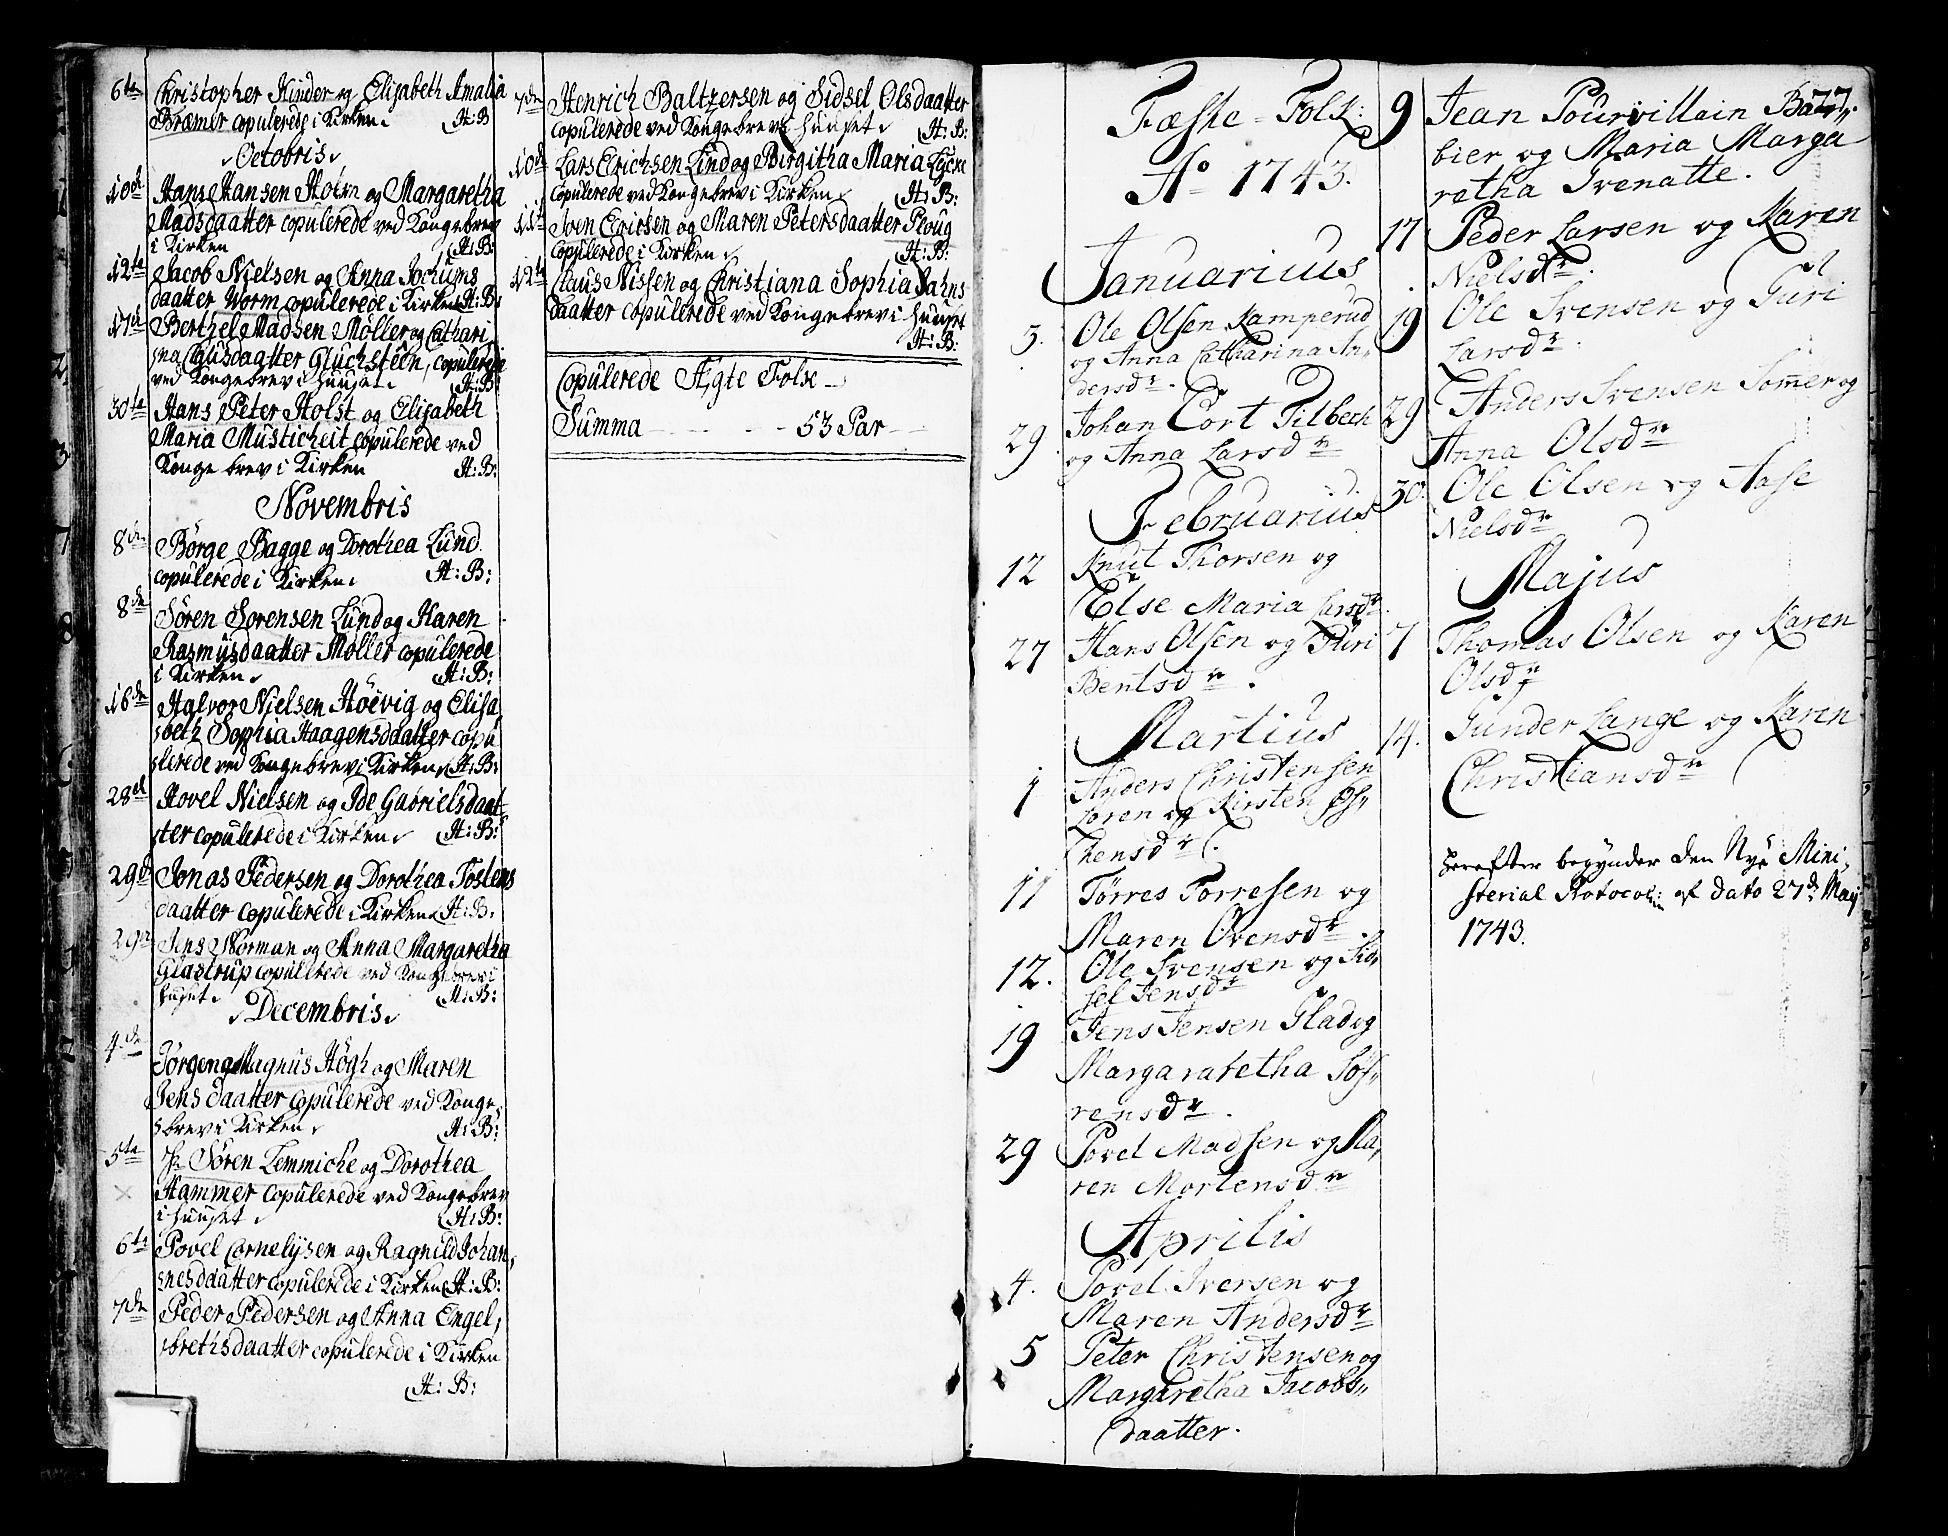 6te Christopher Hinder og Elisabeth Amalia
Bræmer copulerede i Kirken. H:B
Octobris
10de Hans Hansen Holm og Margaretha
Madsdaatter copulerede ved Kongebrev
i Kirken H:B:
12te Jacob Nielsen og Anna Jochums
daatter Worm copulerede i Kirken H:B:
17de Berthel Madsen Møller og Cathari
na Clausdaatter Gluchsteen, copulerede
ved Kongebrev i Huuset. H:B:
30te Hans Peter Holst og Elisabeth
Maria Musticheit copulerede ved
Konge brev i Kirken H:B:
Novembris
8de Børge Bagge og Dorothea Lund
copulerede i Kirken. H:B:
8de Søren Sørensen Lund og Karen
Rasmusdaatter Møller copulerede
i Kirken. H:B:
16de Halvor Nielsen Høevig og Elisa
beth Sophia Haagensdaatter copu
lerede ved Kongebrev i Kirken H:B:
28de Hovel Nielsen og Ide Gabrielsdaat
ter copulerede i Kirken H:B:
29de Jonas Pedersen og Dorothea Tostens
daatter copulerede i Kirken H:B:
29de Jens Norman og Anna Margaretha
Glastrup copulerede ved Kongebrev i
Huuset. H:B:
Decembris
4de Jørgen Magnus Høgh og Maren
Jensdaatter copulerede ved Konge
brev i Kirken H:B:
5te Hr Søren Lemmiche og Dorothea
Hammer copulerede ved Kongebrev
i Huuset H:B:
6te Povel Cornelysen og Ragnild Johan
nesdaatter copulerede i Kirken H:B:
7de Peder Pedersen og Anna Engel,
brethsdaatter copulerede i Kirken
H:B:
7de Henrich Baltzersen og Sidsel Olsdaatter
copulerede ved Kongebrev i Huuset H:B:
10de Lars Erichsen Lind og Birgitha Maria Lycke
copulerede ved Kongebrev i Kirken H:B:
11te Sven Ericsen og Maren Petersdaatter Ploug
copulerede i Kirken H:B:
12te Claus Nissen og Christiana Sophia Jahns
daatter copulerede ved Kongebrev i Huuset
H:B:
Copulerede Ægte Folk
Summa - - - - - 53 Par
Fæste-Folk:
Ao 1743.
Januarius
3. Ole Olsen Kamperud
og Anna Catharina An,,
dersdr.
29. Johan Cort Tilbech
og Anna Larsdr
Februarius
12 Knut Thorsen og
Else Maria Larsdr.
27 Hans Olsen og Guri
Bentsdr.
Martius
1 Anders Christensen
Loren og Kirsten Os,,
thensdr.
11 Tørres Torresen og
Maren Ovensdr.
12. Ole Svensen og Sid,,
sel Jensdr
19 Jens Jensen Glad og
Margaratetha Sø,,
rensdr.
29 Povel Madsen og Ka,,
ren Mortensdr
Aprilis
4. Povel Iversen og
Maren Andersdr
5 Peter Christensen og
Margaretha Jacobs,,
daatter.
77.
9 Jean Pourvillain Bar,,
bier og Maria Marga
retha Grenatte.
17 Peder Larsen og Karen
Nielsdr.
19 Ole Svensen og Guri
Larsdr.
29 Anders Svensen Sommer og
Anna Olsdr
30. Ole Olsen og Aase
Nielsdr
Majus
7 Thomas Olsen og Karen
Olsdr
14. Gunder Lange og Karen
Christiansdr
Herefter begynder den Nye Mini,
sterial Protocoll af dato 27de Maij
1743.